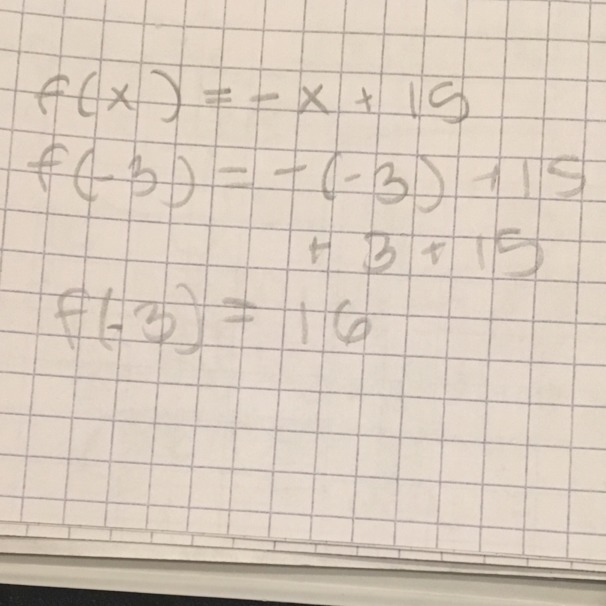 f(x) = - x + 15
f(-3) = - (-3) + 15
+ 3 + 15
f(-3) = 16